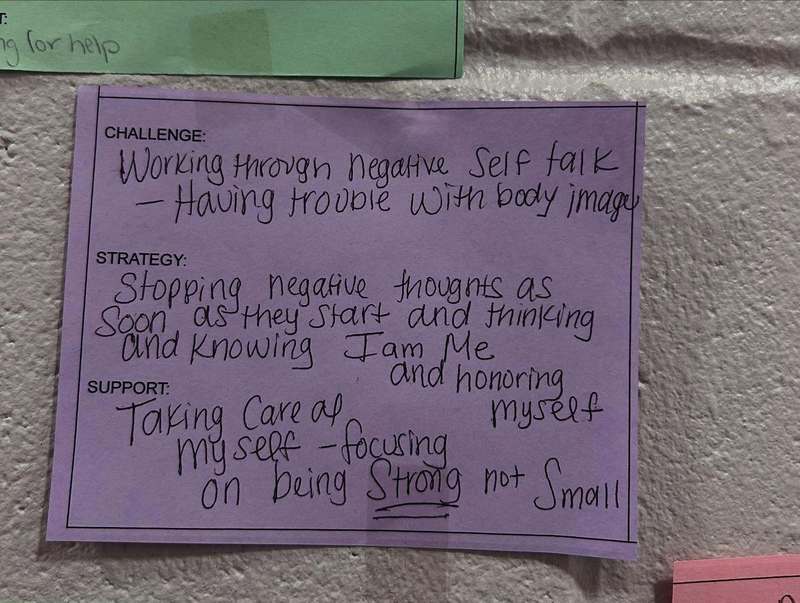 T:
ng for help
CHALLENGE:
Working through negative self talk
- Having trouble with body image
STRATEGY:
Stopping negative thoughts as
soon as they start and thinking
and knowing I am Me
and honoring
myself
SUPPORT:
Taking care of
myself - focusing
on being Strong not Small